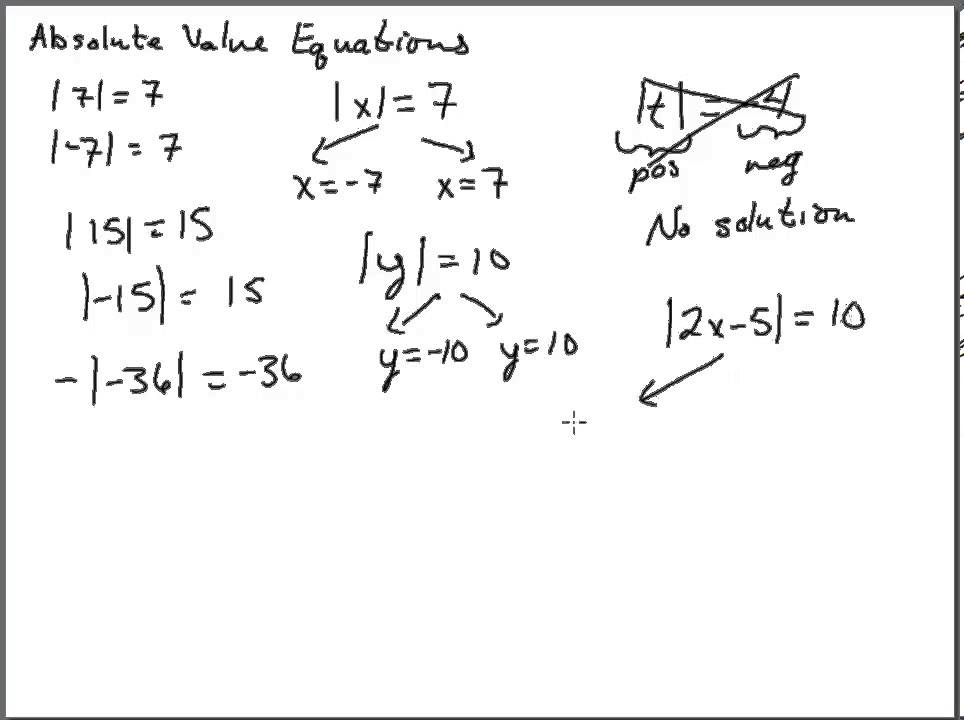 Absolute Value Equations
|7| = 7
|-7| = 7
|15| = 15
|-15| = 15
-|-36| = -36
|x| = 7
x = -7 x = 7
|y| = 10
y = -10 y = 10
|t| = -4
pos neg
No solution
|2x-5| = 10